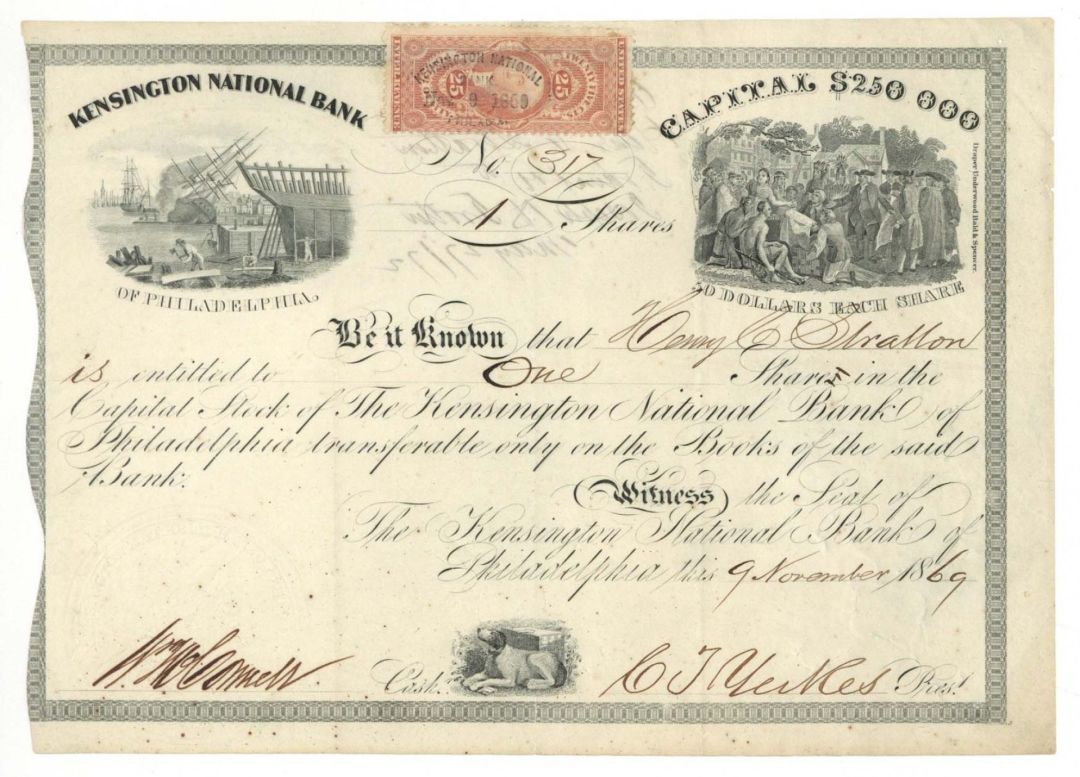 KENSINGTON NATIONAL BANK
OF PHILADELPHIA
25 25
KENSINGTON NATIONAL
BANK
9 1869
CAPITAL $250 000
50 DOLLARS EACH SHARE
Draper Underwood Bald & Spencer.
No. 317
1 Shares
Be it Known that Henry C Stratton
is entitled to One Share in the
Capital Stock of The Kensington National Bank of
Philadelphia transferable only on the Books of the said
Bank.
Witness the Seal of
The Kensington National Bank of
Philadelphia this 9 November 1869
W. McConnell Cash.r
C T Yerkes Pres.t